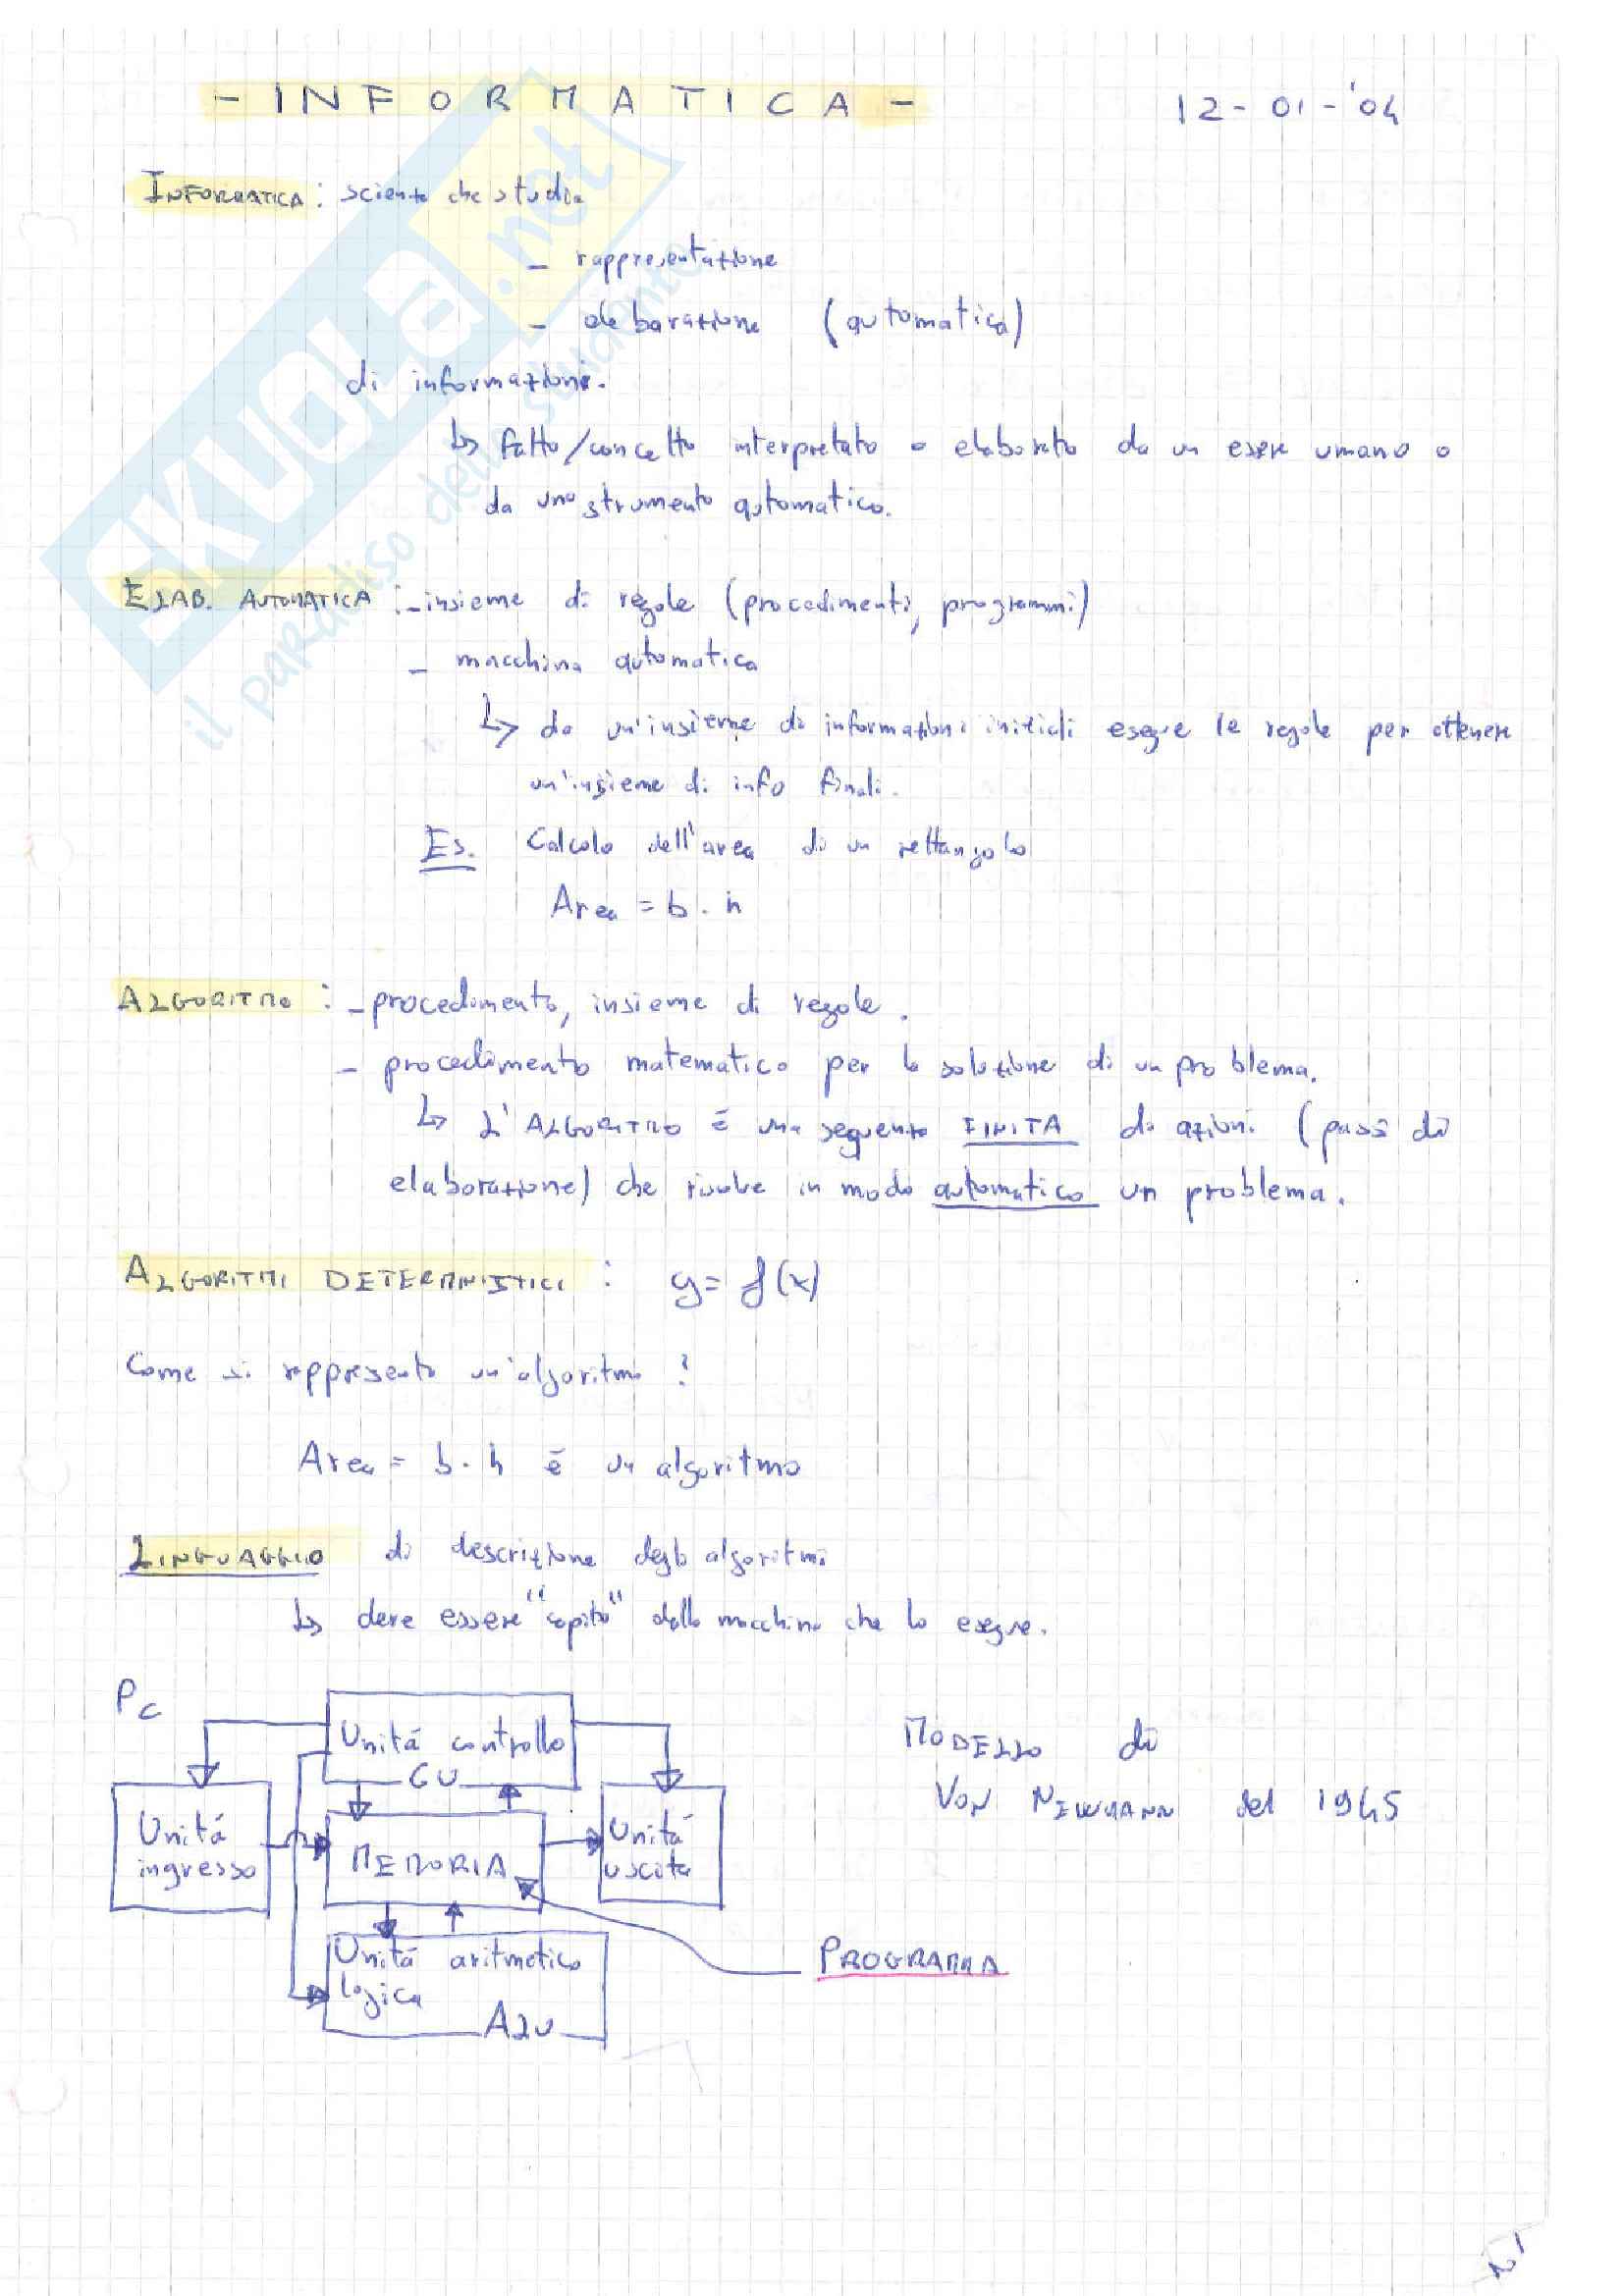 - INFORMATICA - 12-01-'04
INFORMATICA: scienza che studia
- rappresentazione
- elaborazione (automatica)
di informazioni.
↳ fatto/concetto interpretato o elaborato da un essere umano o
da uno strumento automatico.
ELAB. AUTOMATICA: - insieme di regole (procedimenti, programmi)
- macchina automatica
↳ da un'insieme di informazioni iniziali esegue le regole per ottenere
un'insieme di info finali.
Es. Calcolo dell'area di un rettangolo
Area = b · h
ALGORITMO: - procedimento, insieme di regole.
- procedimento matematico per la soluzione di un problema.
↳ L'ALGORITMO è una sequenza FINITA di azioni (passi di
elaborazione) che risolve in modo automatico un problema.
ALGORITMI DETERMINISTICI: y = f(x)
Come si rappresenta un'algoritmo?
Area = b · h è un algoritmo
LINGUAGGIO di descrizione degli algoritmi
↳ deve essere "capito" dalla macchina che lo esegue.
PC
Unità controllo
CU
MODELLO di
VON NEWMANN del 1945
Unità
ingresso
MEMORIA
Unità
uscita
Unità aritmetico
logica
ALU
PROGRAMMA
SKUOLA.net
il paradiso dello studente